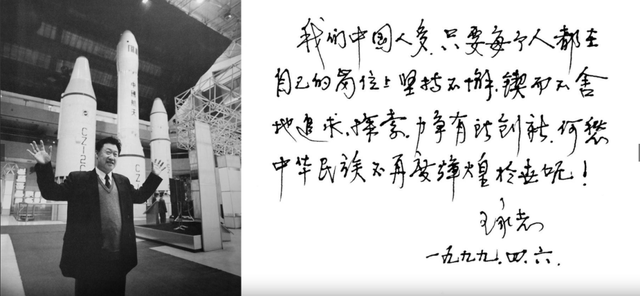 中国航天
我们中国人多，只要每个人都在
自己的岗位上坚持不懈，锲而不舍
地追求、探索，力争有所创新，何愁
中华民族不再度辉煌于世呢！
王永志
一九九九.四.六.